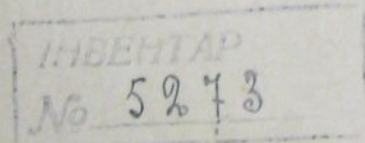 ІНВЕНТАР
No 5273